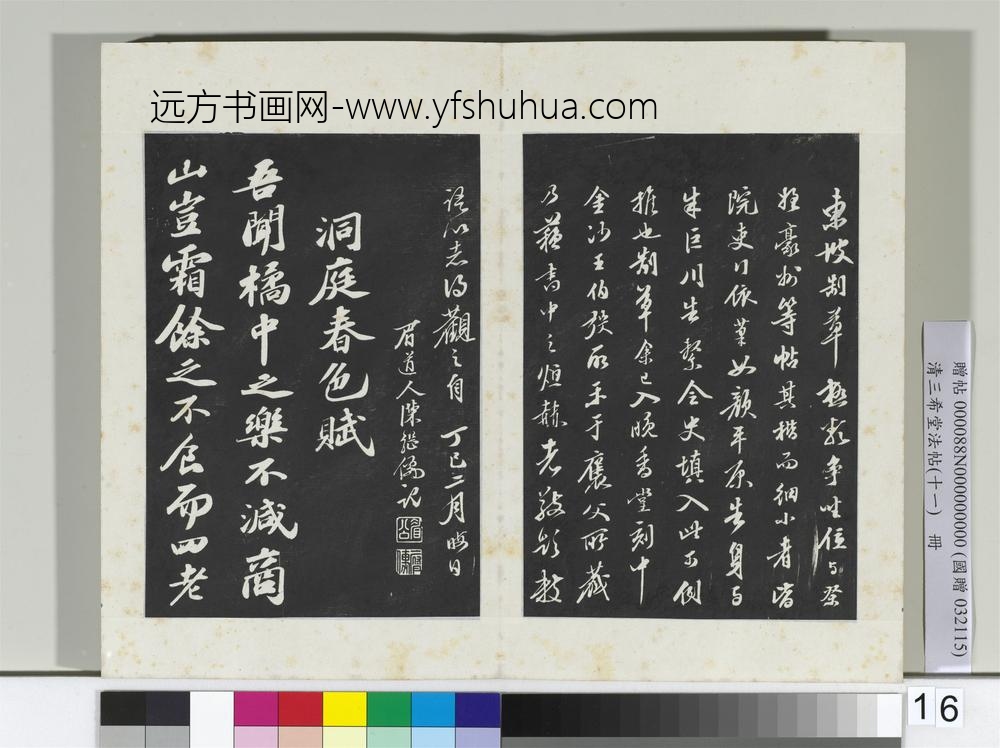 远方书画网-www.yfshuhua.com
東坡制草極類爭坐位与祭
姪豪州等帖其楷而細小者皆
院吏依草如顏平原告身与
朱巨川告系令史填入此可例
推也制草余已入晚香堂刻中
金沙王伯發所示于褒父所藏
乃蘇書中之烜赫者敬題數
語以志得觀之自 丁巳二月晦日
眉道人陳繼儒記
洞庭春色賦
吾聞橘中之樂不減商
山豈霜餘之不食而四老
贈帖 000088N000000000 (國贈 032115)
清三希堂法帖(十一) 冊
16